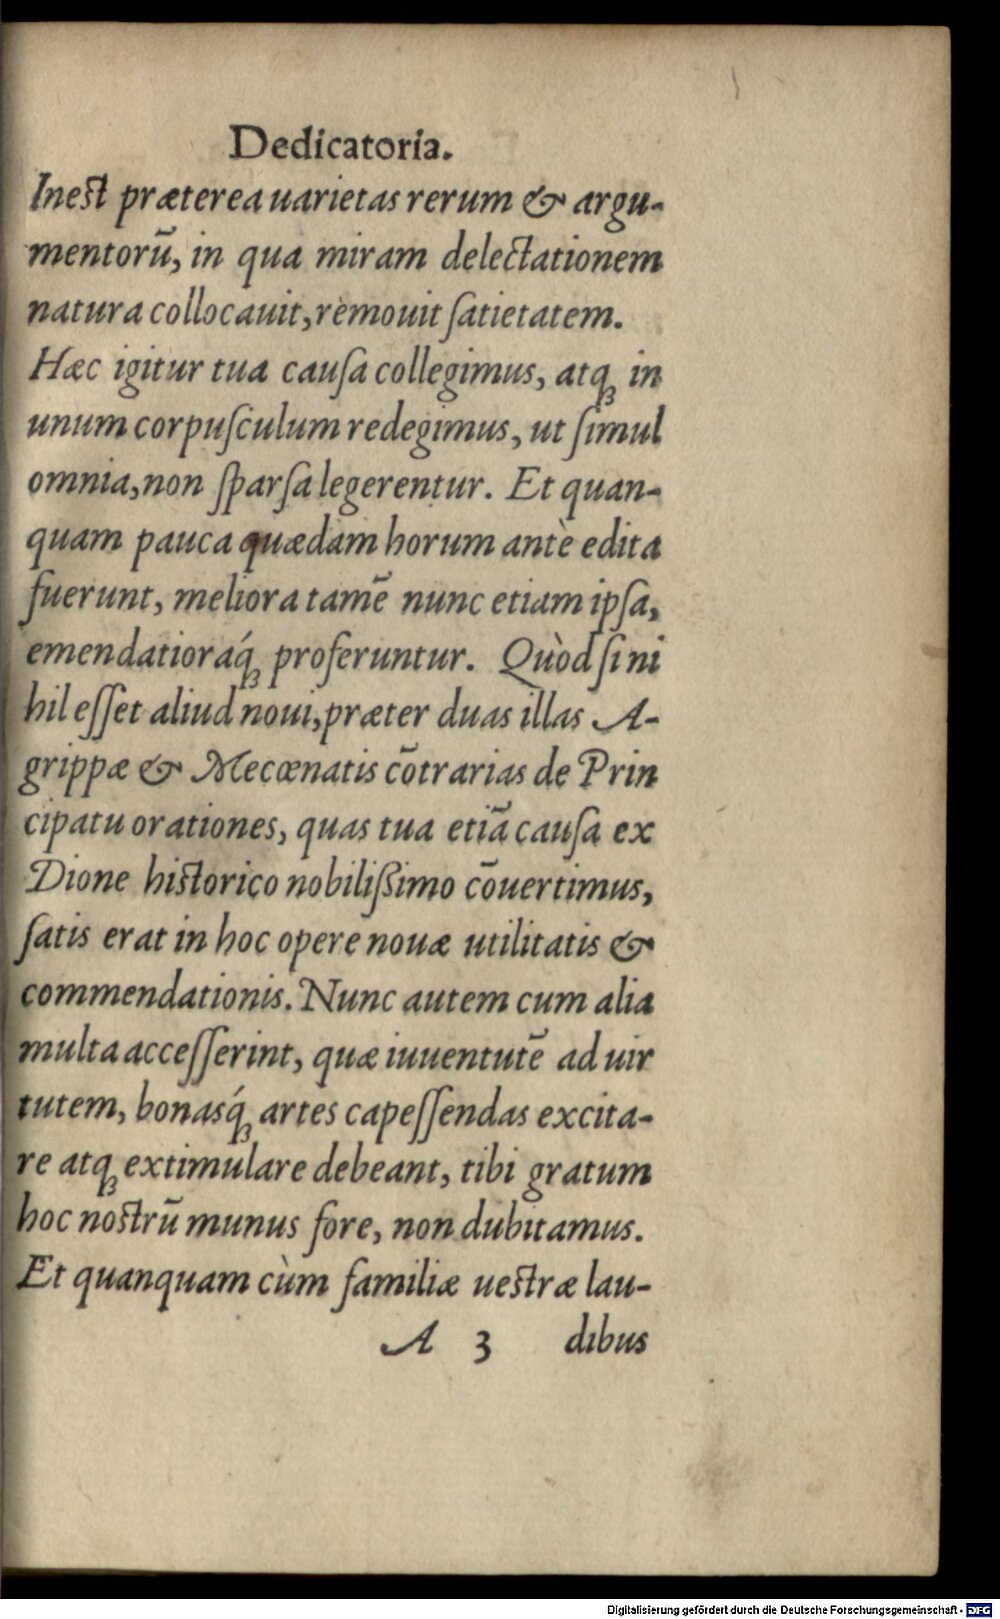 Dedicatoria.
Inest præterea uarietas rerum & argu-
mentorū, in qua miram delectationem
natura collocauit, remouit ſatietatem.
Hæc igitur tua cauſa collegimus, atq́ꝫ in
unum corpuſculum redegimus, ut ſimul
omnia, non ſparſa legerentur. Et quan-
quam pauca quædam horum antè edita
fuerunt, meliora tamē nunc etiam ipſa,
emendatioraq́ꝫ proferuntur. Quòd ſi ni
hil eſſet aliud noui, præter duas illas A-
grippæ & Mecœnatis cōtrarias de Prin
cipatu orationes, quas tua etiā cauſa ex
Dione historico nobilißimo cōuertimus,
ſatis erat in hoc opere nouæ utilitatis &
commendationis. Nunc autem cum alia
multa acceſſerint, quæ iuuentutē ad uir
tutem, bonasq́ꝫ artes capeſſendas excita-
re atqꝫ extimulare debeant, tibi gratum
hoc nostrū munus fore, non dubitamus.
Et quanquam cùm familiæ uestræ lau-
A 3 dibus
Digitalisierung gefördert durch die Deutsche Forschungsgemeinschaft - DFG